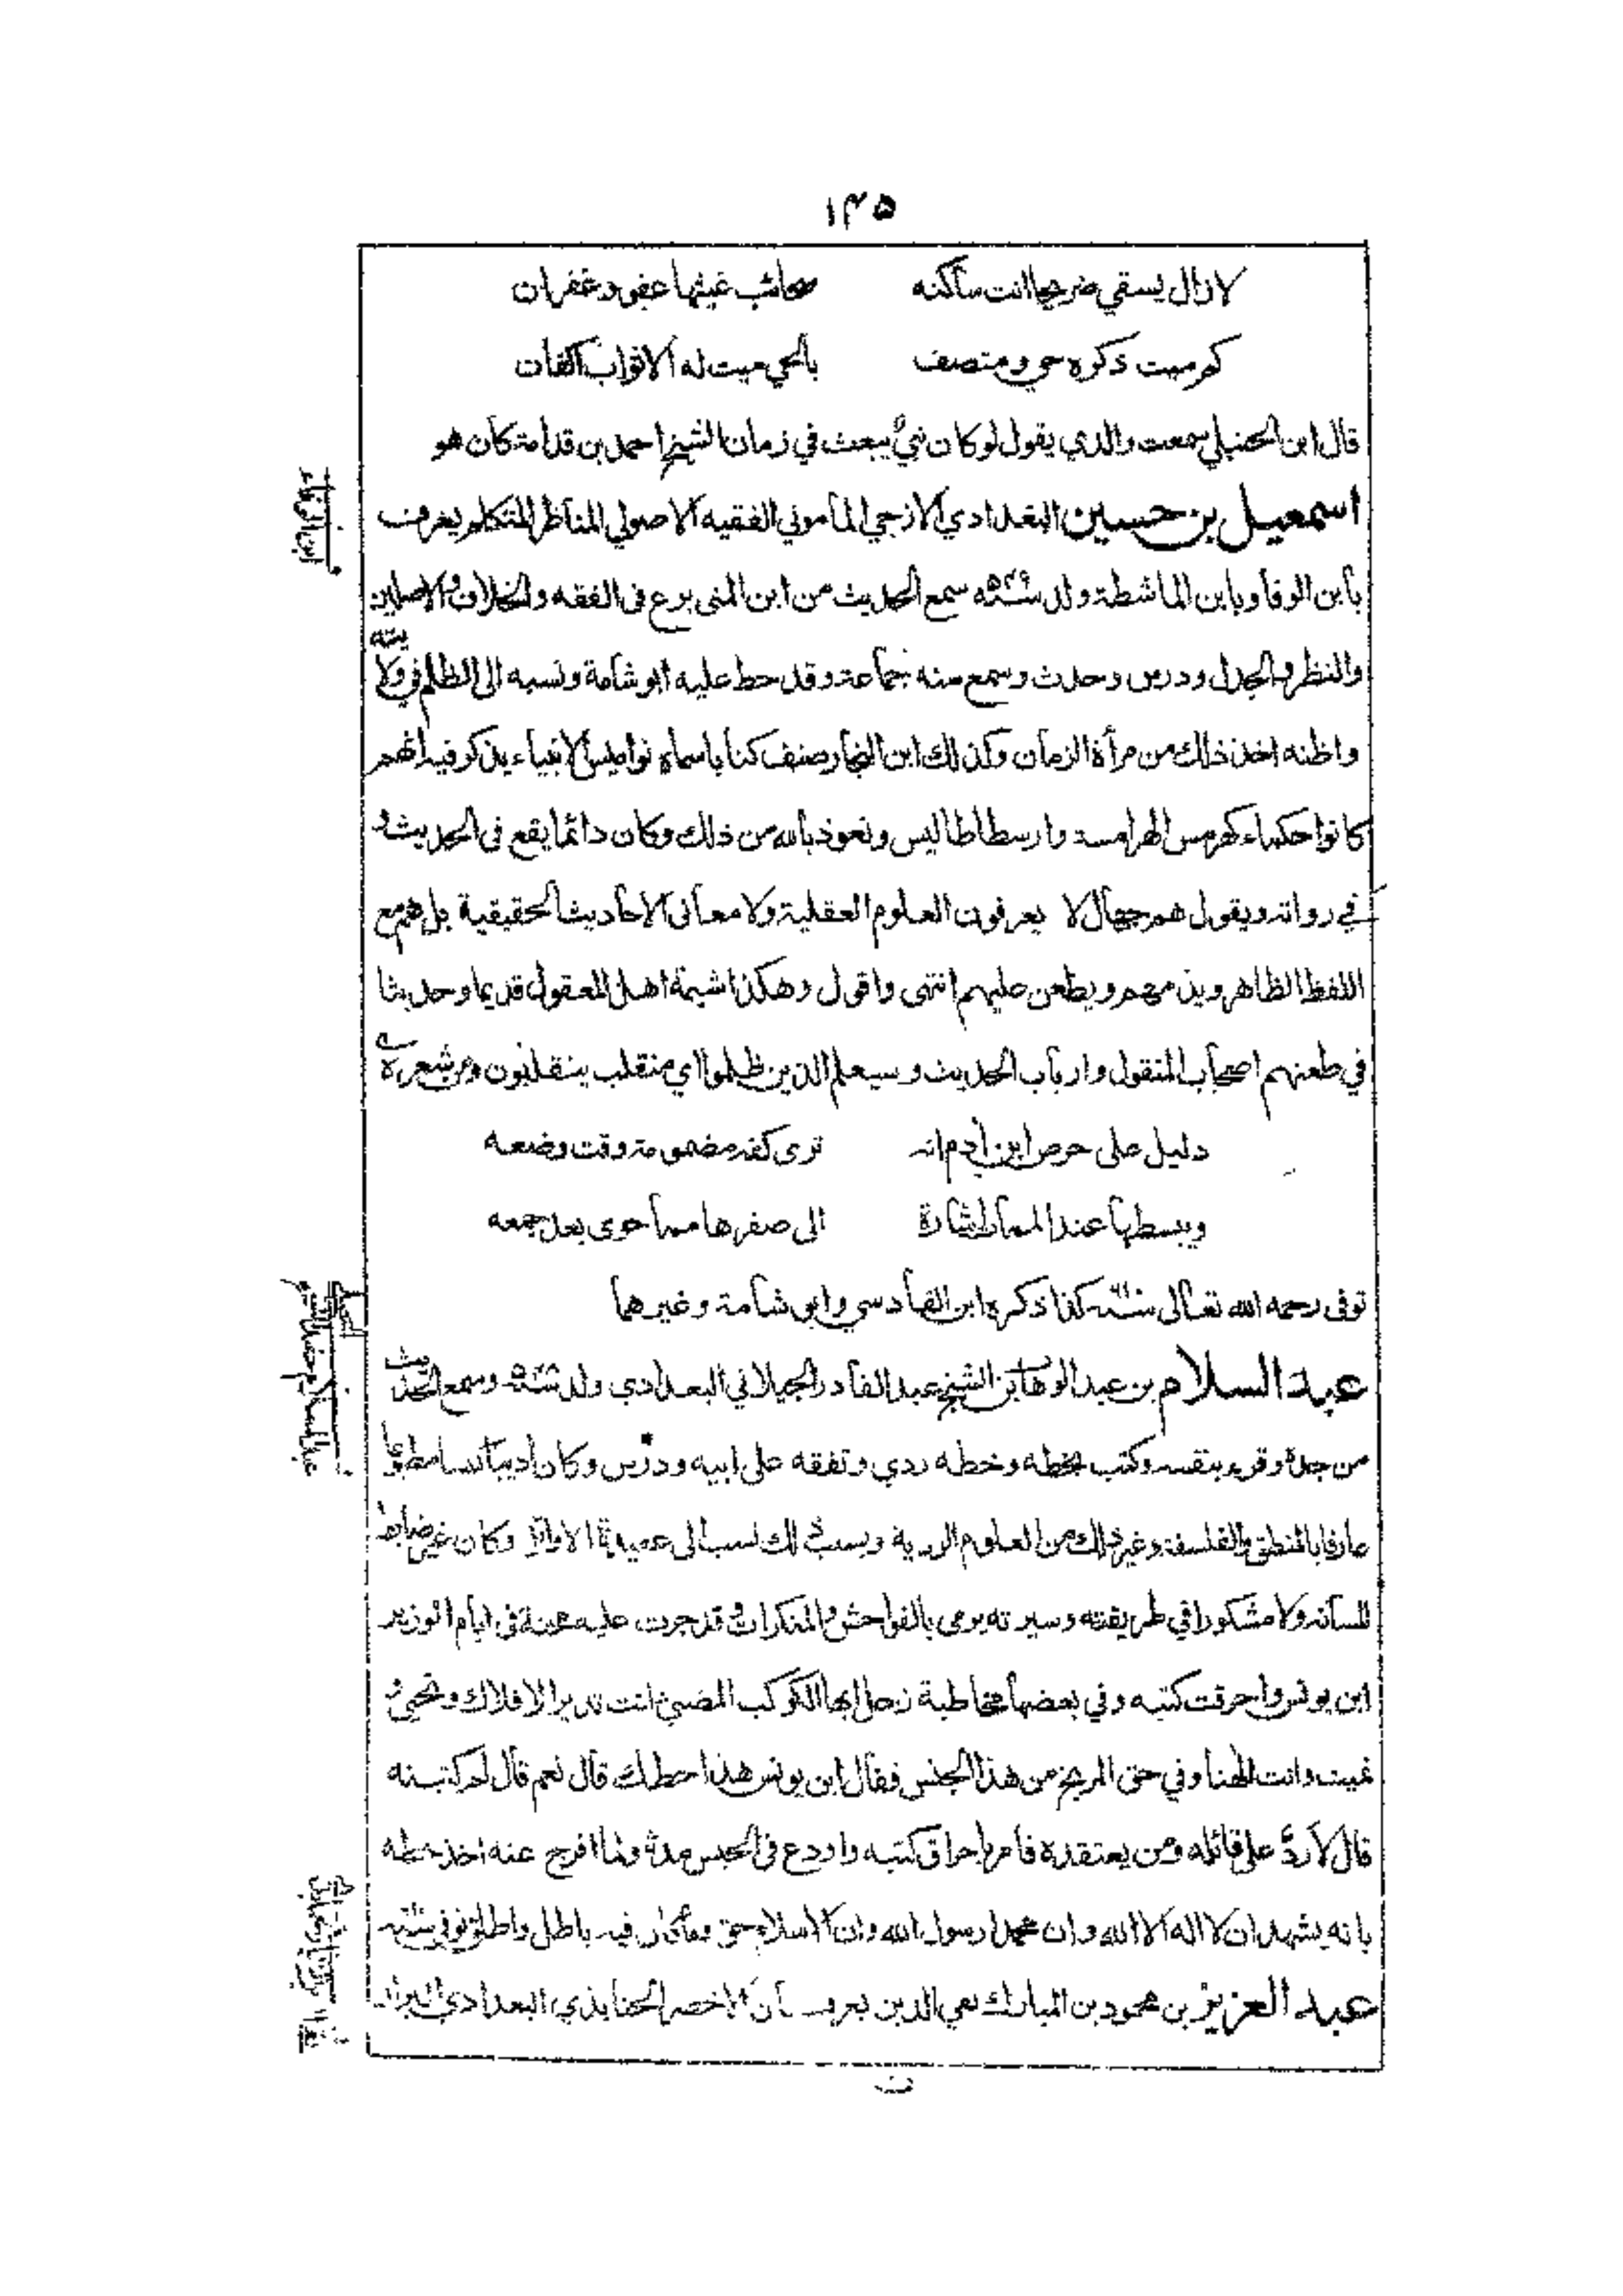 ١٣٥
لا زال يسقي ضريحا انت ساكنه سحائب غيثها عفو وغفران
كم ميت ذكره حي ومتصف بالحي ميت له الاثواب اكفان
قال ابن الحنبلي سمعت والدي يقول لو كان نبي يبعث في زمان الشيخ احمد بن قدامة كان هو
اسمعيل بن حسين البغدادي الازجي المأموني الفقيه الاصولي المناظر المتكلم يعرف
بابن الوفا وبابن الماشطة ولد سنة ٥٤٩ سمع الحديث من ابن المنى برع في الفقه والخلاف والاصلين
والنظر والجدل ودرس وحدث وسمع منه جماعة وقد حط عليه ابو شامة ونسبه الى الظلم في ولايته
واظنه اخذ ذلك من مرأة الزمان وكذلك ابن النجار صنف كتابا سماه نواميس الانبياء يذكر فيه انهم
كانوا حكماء كهرمس الهرامسة وارسطاطاليس ونعوذ بالله من ذلك وكان دائما يقع في الحديث و
في رواته ويقول هم جهال لا يعرفون العلوم العقلية ولا معاني الاحاديث الحقيقية بل هم مع
اللفظ الظاهر ويذمهم ويطعن عليهم انتهى واقول وهكذا شيمة اهل المعقول قديما وحديثا
في طعنهم اصحاب المنقول وارباب الحديث وسيعلم الذين ظلموا اي منقلب ينقلبون ومن شعره
دليل على حرص ابن أدم انه ترى كفه مضمومة وقت وضعه
ويبسطها عند الممات اشارة الى صفرها مما حوى بعد جمعه
توفى رحمه الله تعالى سنة كذا ذكره ابن القادسي وابو شامة وغيرهما
عبد السلام بن عبد الوهاب بن الشيخ عبد القادر الجيلاني البغدادي ولد سنة وسمع الحديث
من جده وقرء بنفسه وكتب بخطه وخطه ردي وتفقه على ابيه ودرس وكان أديبا
عارفا بالمنطق والفلسفة وغير ذلك من العلوم الردية وبسبب ذلك نسب الى عقيدة الاوائل وكان غير ضابط
للسانه ولا مشكورا في طريقته وسيرته يرمى بالفواحش والمنكرات وقد جرت عليه محنة في ايام الوزير
ابن يونس واحرقت كتبه وفي بعضها مخاطبة زحل ايها الكوكب المضيئ انت تدبر الافلاك وتحيي و
تميت وانت الهنا وفي حق المريخ من هذا الجنس فقال ابن يونس هذا خطك قال نعم قال لم كتبته
قال لأردّ على قائله ومن يعتقده فأمر باحراق كتبه واودع في الحبس مدة ولما افرج عنه اخذ خطه
بانه يشهد ان لا اله الا الله وان محمدا رسول الله وان الاسلام حق وما كان فيه باطل واطلق توفى سنة
عبد العزيز بن محمود بن المبارك تقي الدين يعرف بابن الاخضر الجنابذي البغدادي البزاز
ابن الوفاء
عبد السلام حفيد الشيخ